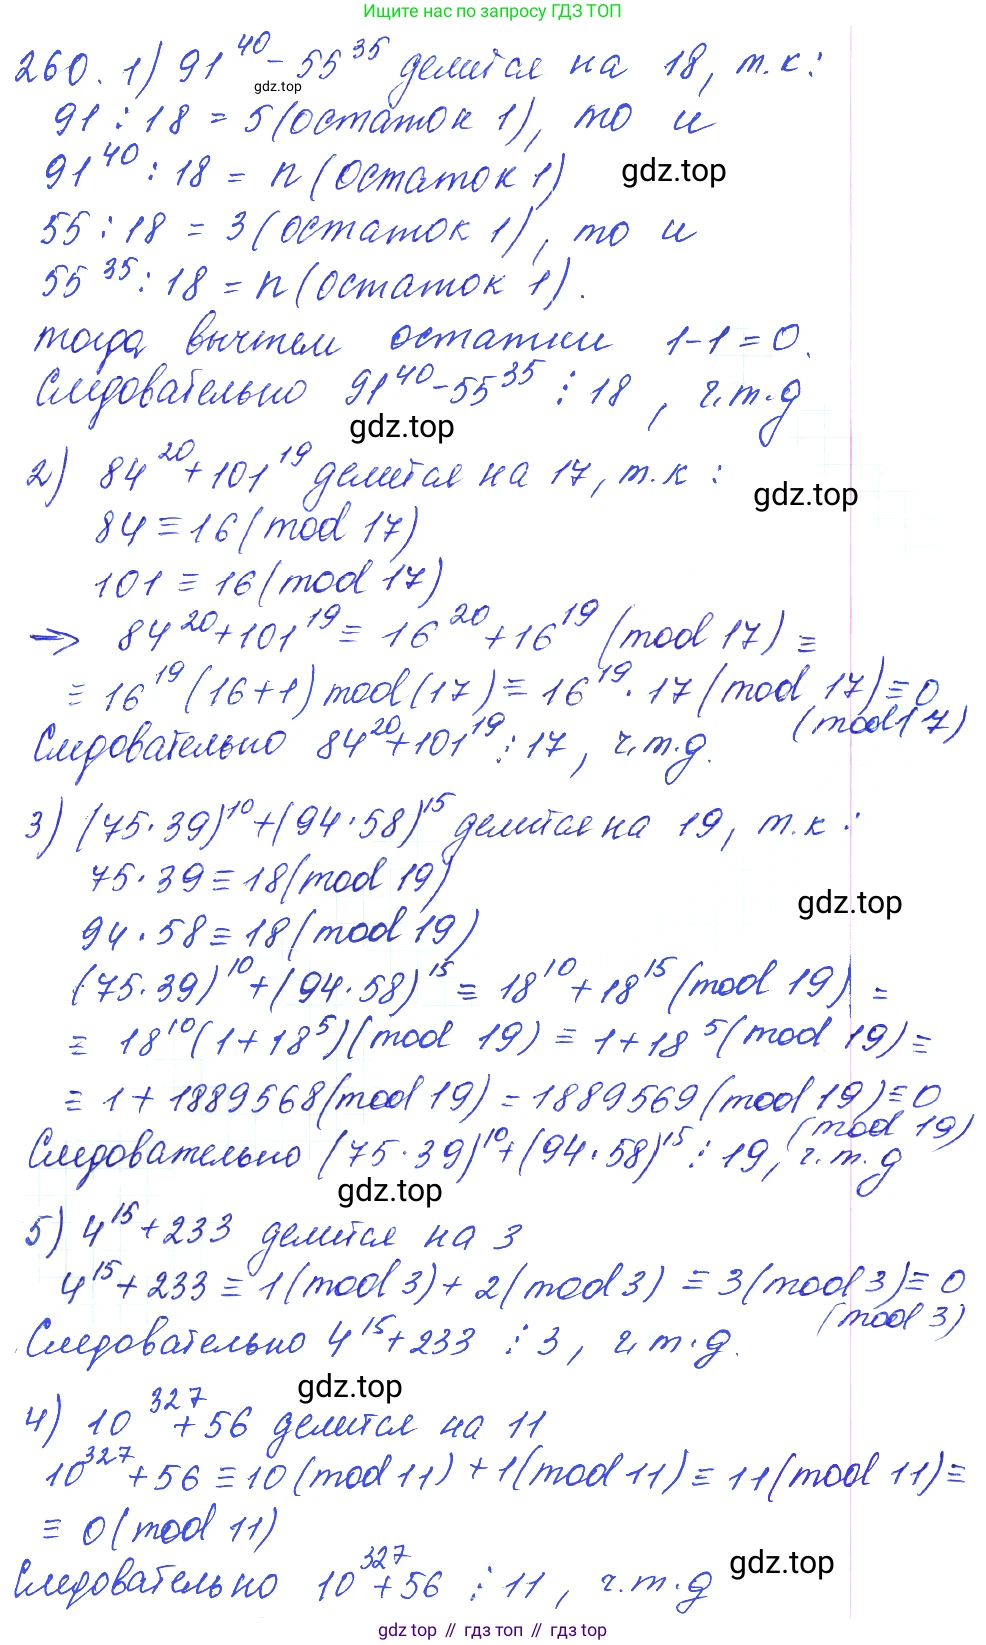 Ищите нас по запросу ГДЗ ТОП
260. 1) 91^40 - 55^35 делится на 18, т.к:
gdz.top
91 : 18 = 5 (остаток 1), то и
91^40 : 18 = n (остаток 1)
gdz.top
55 : 18 = 3 (остаток 1), то и
55^35 : 18 = n (остаток 1).
тогда вычтем остатки 1-1=0.
Следовательно 91^40 - 55^35 ⋮ 18, ч.т.д
gdz.top
2) 84^20 + 101^19 делится на 17, т.к :
gdz.top
84 ≡ 16 (mod 17)
101 ≡ 16 (mod 17)
=> 84^20 + 101^19 ≡ 16^20 + 16^19 (mod 17) ≡
≡ 16^19 (16+1) mod (17) ≡ 16^19 · 17 (mod 17) ≡ 0
(mod 17)
Следовательно 84^20 + 101^19 ⋮ 17, ч.т.д.
3) (75·39)^10 + (94·58)^15 делится на 19, т.к :
75·39 ≡ 18 (mod 19)
gdz.top
94·58 ≡ 18 (mod 19)
(75·39)^10 + (94·58)^15 ≡ 18^10 + 18^15 (mod 19) =
≡ 18^10 (1+18^5) (mod 19) ≡ 1+18^5 (mod 19) ≡
≡ 1 + 1889568 (mod 19) = 1889569 (mod 19) ≡ 0
(mod 19)
Следовательно (75·39)^10 + (94·58)^15 ⋮ 19, ч.т.д
gdz.top
5) 4^15 + 233 делится на 3
4^15 + 233 ≡ 1 (mod 3) + 2 (mod 3) ≡ 3 (mod 3) ≡ 0
(mod 3)
Следовательно 4^15 + 233 ⋮ 3, ч.т.д.
gdz.top
4) 10^327 + 56 делится на 11
10^327 + 56 ≡ 10 (mod 11) + 1 (mod 11) ≡ 11 (mod 11) ≡
≡ 0 (mod 11)
gdz.top
Следовательно 10^327 + 56 ⋮ 11, ч.т.д
gdz.top // гдз топ // gdz top